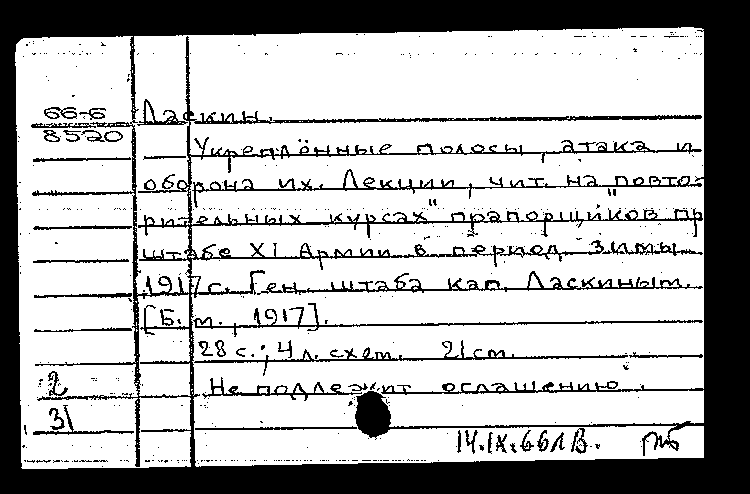 66-6 Ласкин.
8520
Укреплённые полосы, атака и
оборона их. Лекции, чит. на "повто-
рительных курсах" прапорщиков пр
штабе XI Армии в период зимы
1917 г. Ген. штаба кап. Ласкиным.
[Б. м., 1917].
28 с.; 4 л. схем. 21 см.
2 Не подлежит оглашению.
31
14.IX.66 ЛВ.